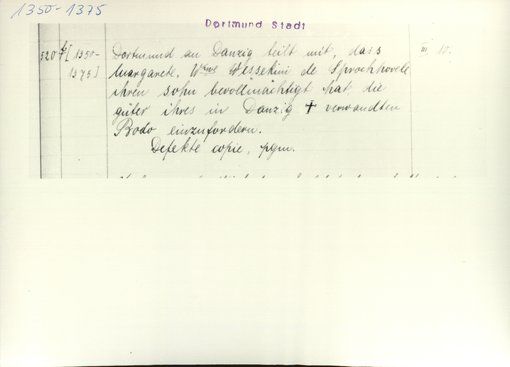 1350-1375
Dortmund Stadt
520 [1350- Dortmund an Danzig teilt mit, dass III 10.
1375] Margarete, Wwe Wessekini de Sprochhovele
ihren sohn bevollmächtigt hat die
güter ihres in Danzig † verwandten
Bodo einzufordern.
Defekte copie, pgm.